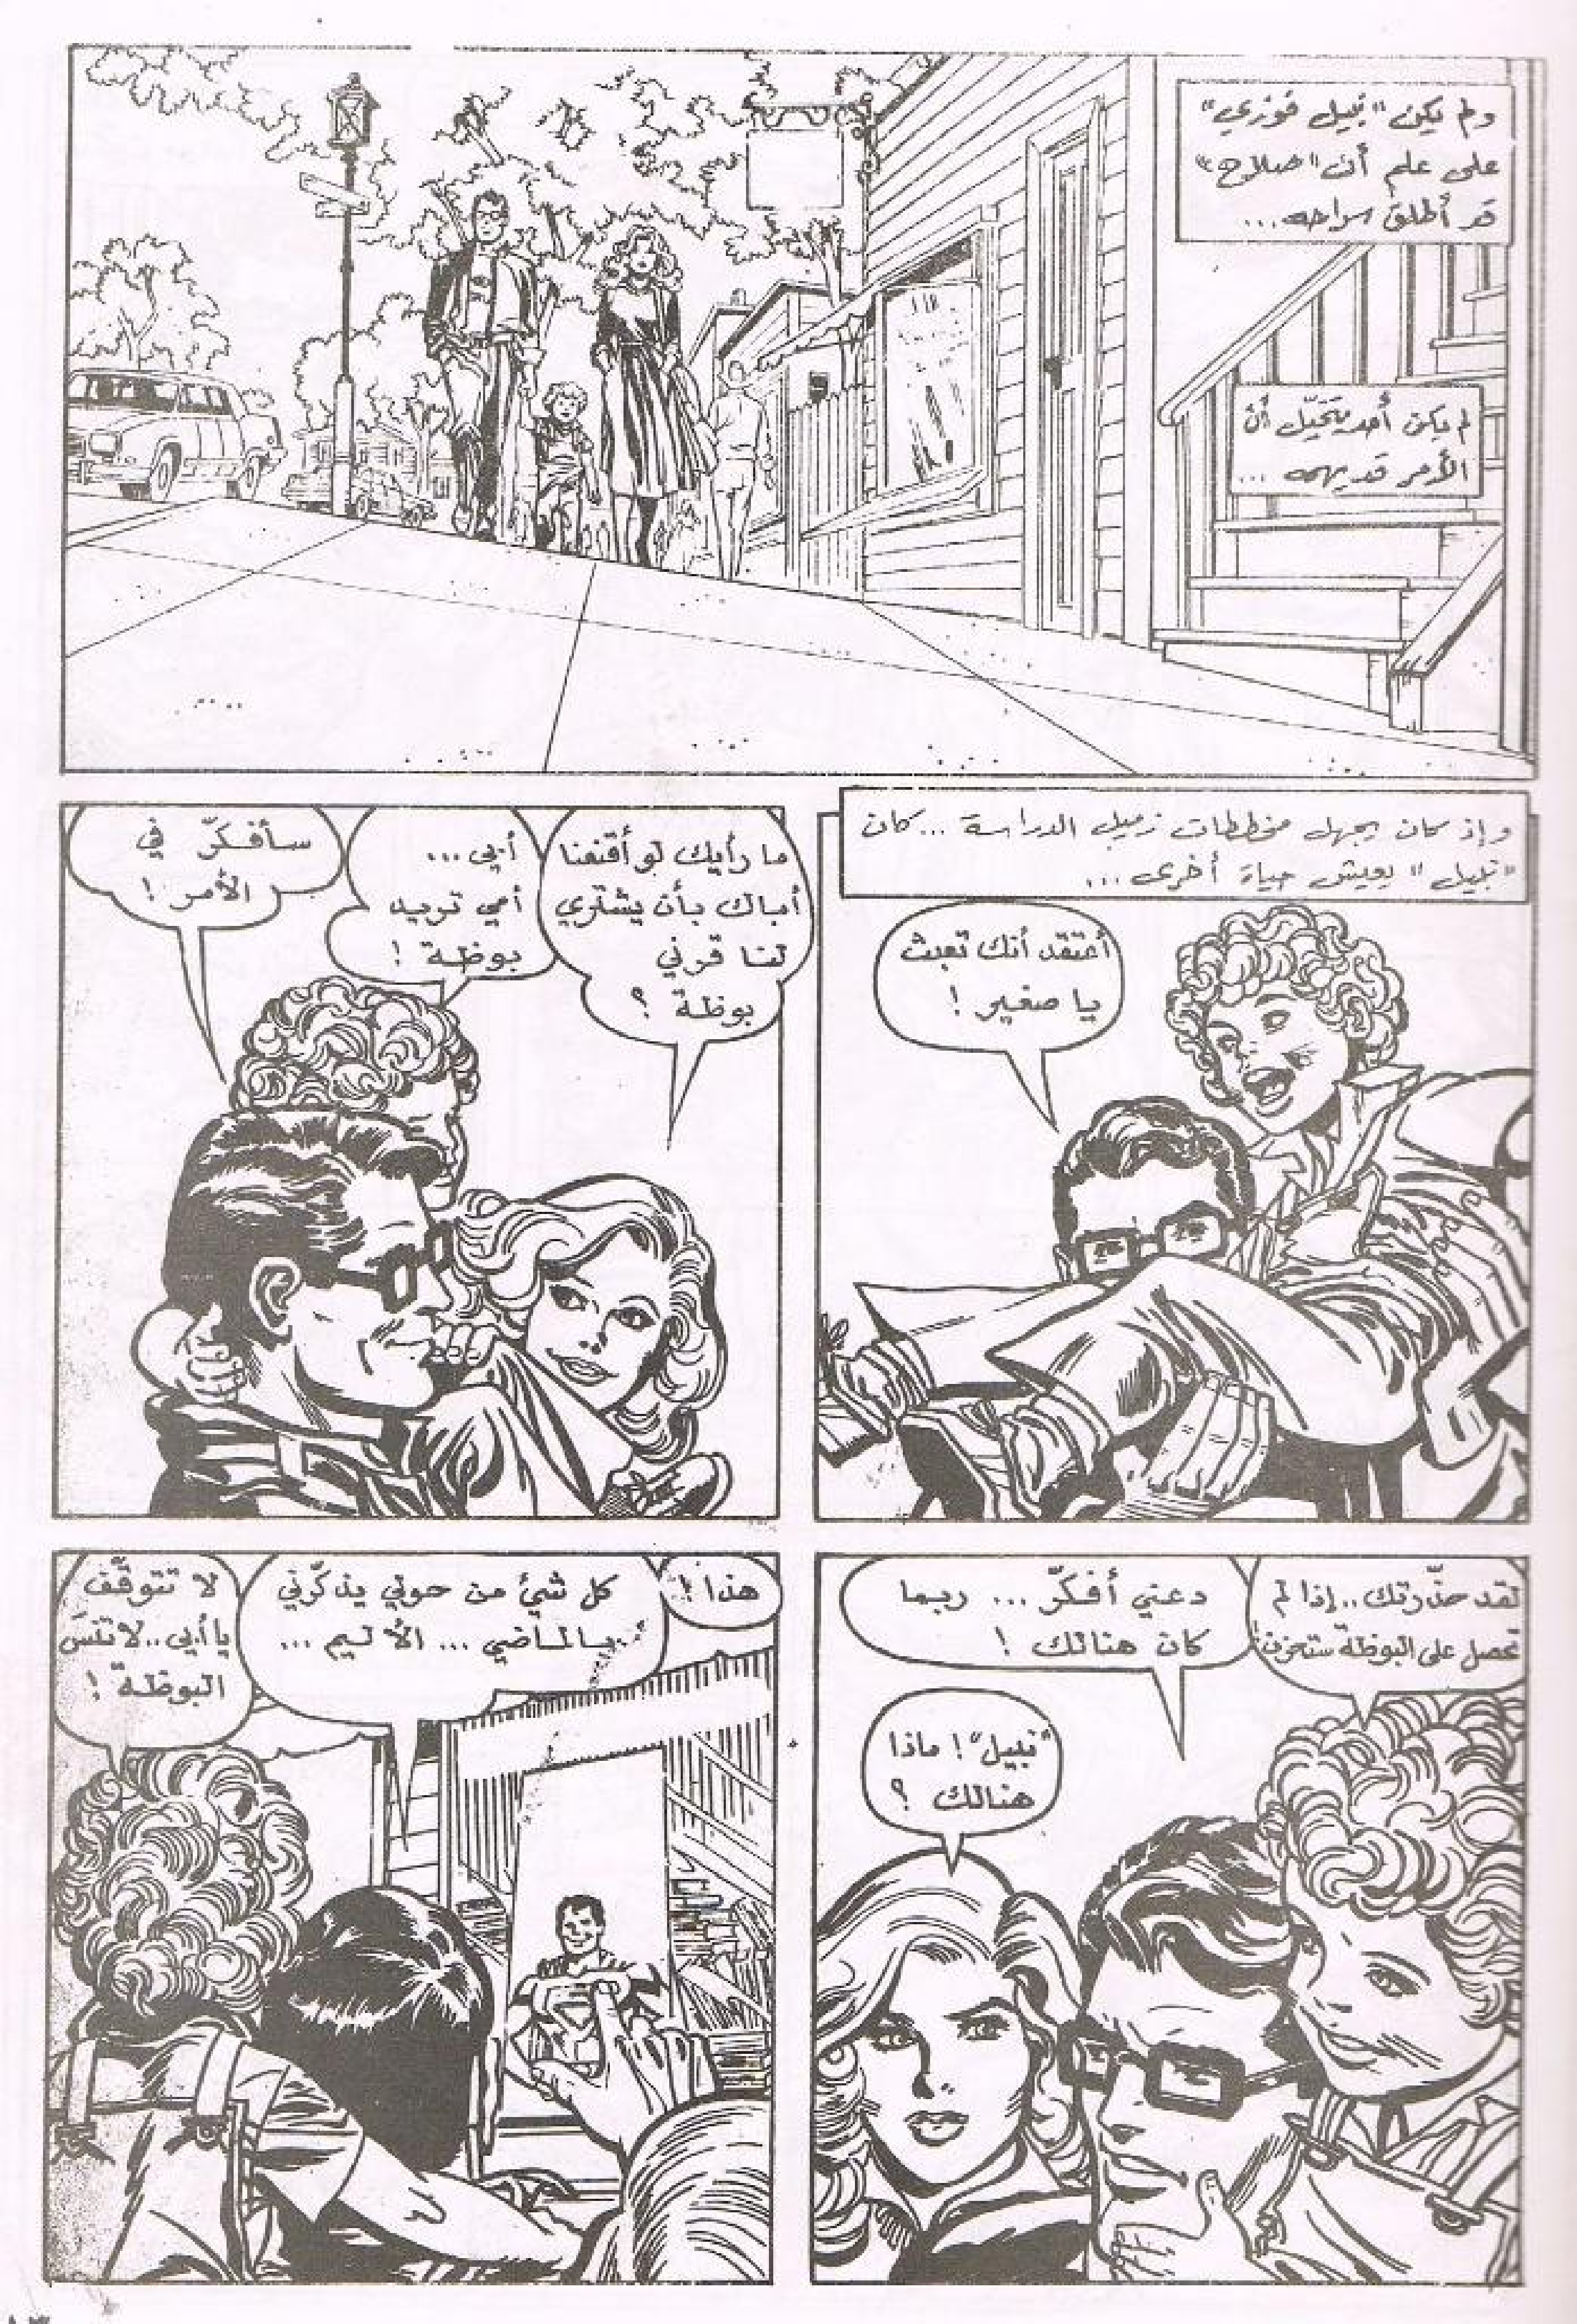 ولم يكن "نبيل فوزي"
على علم أن "صلوح"
قد أطلق سراحه...
لم يكن أحد يتخيّل أن
الأمر قد يهمه...
وإذ كان يجهل مخططات زميل الدراسة... كان
"نبيل" يعيش حياة أخرى...
أعتقد أنك تعبث
يا صغير!
ما رأيك لو أقنعنا
أباك بأن يشتري
لنا قرني
بوظة؟
أبي...
أمي تريد
بوظة!
سأفكّر في
الأمر!
لقد حذّرتك.. إذا لم
تحصل على البوظة ستحزن!
دعني أفكّر... ربما
كان هنالك!
"نبيل"! ماذا
هنالك؟
هذا!
كل شيء من حولي يذكّرني
بالماضي... الأليم...
لا تتوقّف
يا أبي.. لا تنسَ
البوظة!